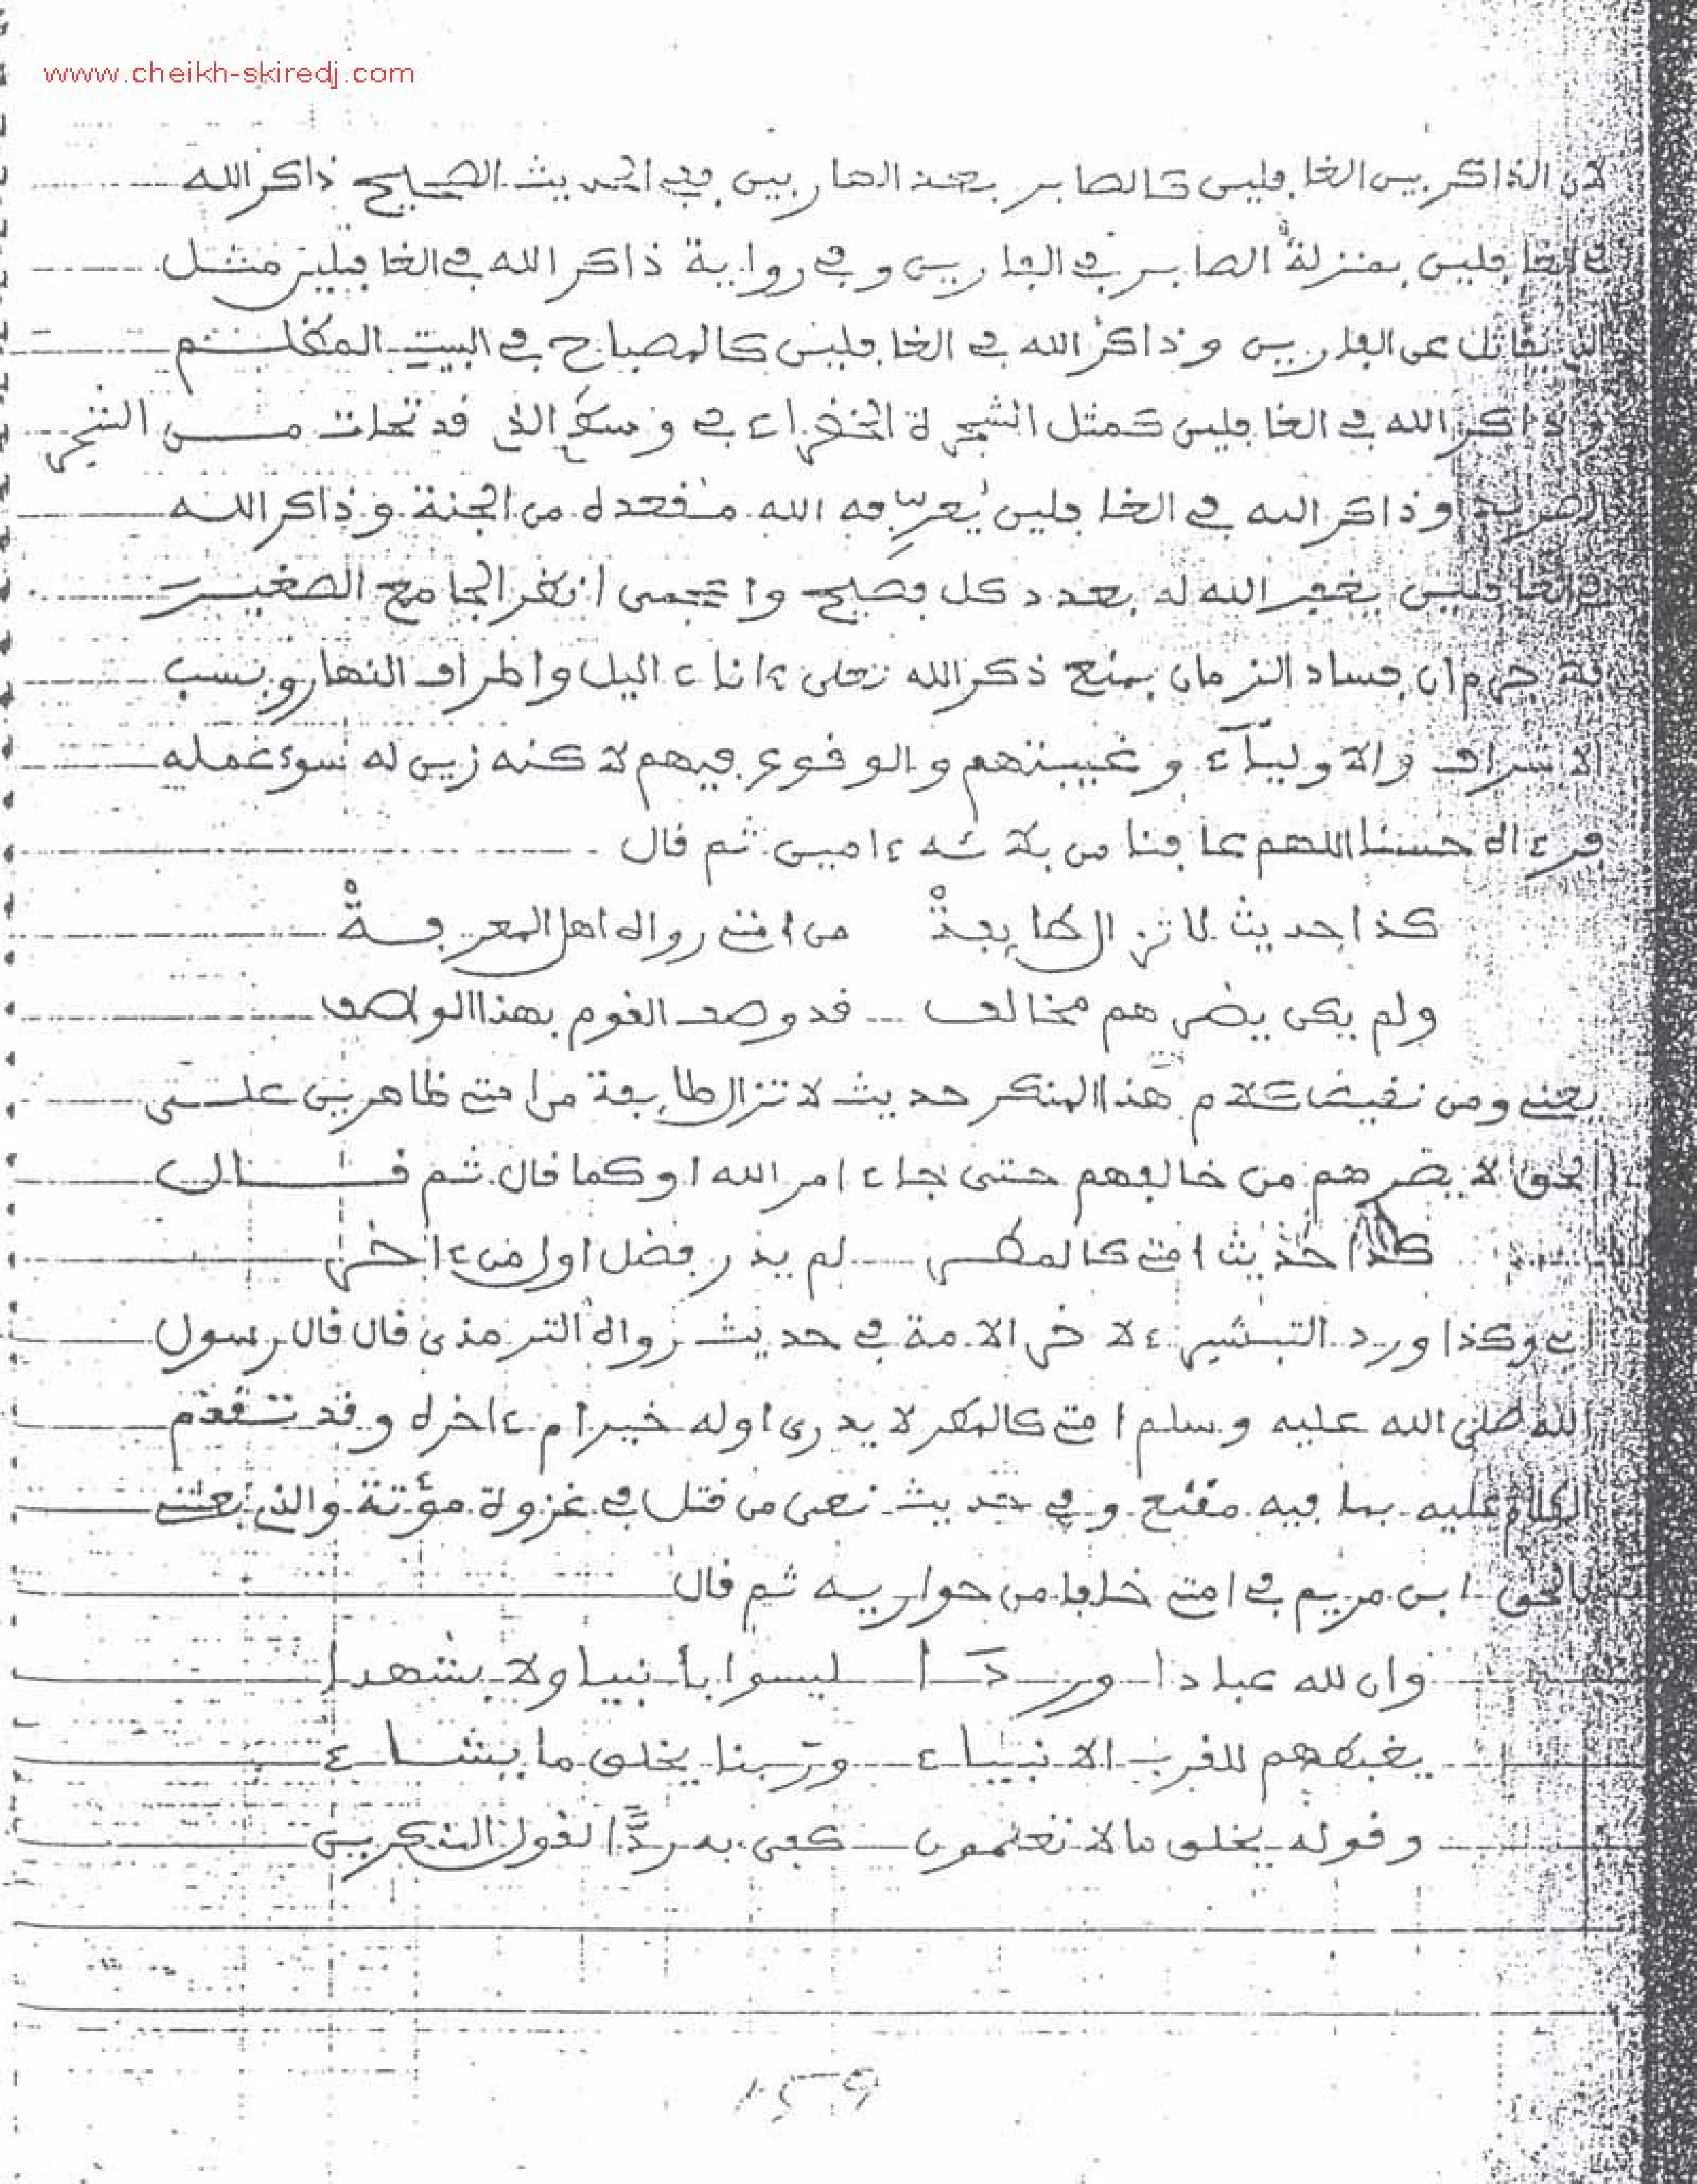 www.cheikh-skiredj.com
لان الذاكر بين الغافلين كالصابر بعد الهاربين ففي الحديث الصحيح ذاكر الله
في الغافلين بمنزلة الصابر في الفارين وفي رواية ذاكر الله في الغافلين مثل
الذي يقاتل عن الفارين وذاكر الله في الغافلين كالمصباح في البيت المظلم
وذاكر الله في الغافلين كمثل الشجرة الخضراء في وسط الذي قد تحات من الشجر
وذاكر الله في الغافلين يعرّفه الله مقعده من الجنة وذاكر الله
في الغافلين يغفر الله له بعدد كل فصيح واعجمى انظر الجامع الصغير
ان فساد الزمان يمنع ذكر الله تعلى ءاناء اليل واطراف النهار وبسب
الاشراف والاولياء وغيبتهم والوقوع فيهم لاكنه زين له سوء عمله
فرءاه حسنا اللهم عافنا من بلائه ءامين ثم قال
كذا حديث لا تزال طايفةْ من امتي رواه اهل المعرفةْ
ولم يكن يضرهم مخالف قد وصف القوم بهذا الواصف
يعني ومن نقيض كلام هذا المنكر حديث لا تزال طايفة من امتي ظاهرين على
الحق لا يضرهم من خالفهم حتى جاء امر الله او كما قال ثم قال
كذا حديث امتي كالمطر لم يدر فضل اول من ءاخر
اي وكذا ورد التبشير ءلاخر الامة في حديث رواه الترمذى قال قال رسول
الله صلى الله عليه وسلم امتي كالمطر لا يدرى اوله خير ام ءاخره وقد تقدم
الكلام عليه بما فيه مقنع وفي حديث نعى من قتل في غزوة مؤتة والذي بعثني
بالحق ابن مريم في امتي خلفا من حواريه ثم قال
وان لله عبادا وردا ليسوا بأنبيا ولا بشهدا
يغبطهم للقرب الانبياء وربنا يخلق ما يشاء
وقوله يخلق ما لا تعلمون كفى به ردًّا لقول المنكرين